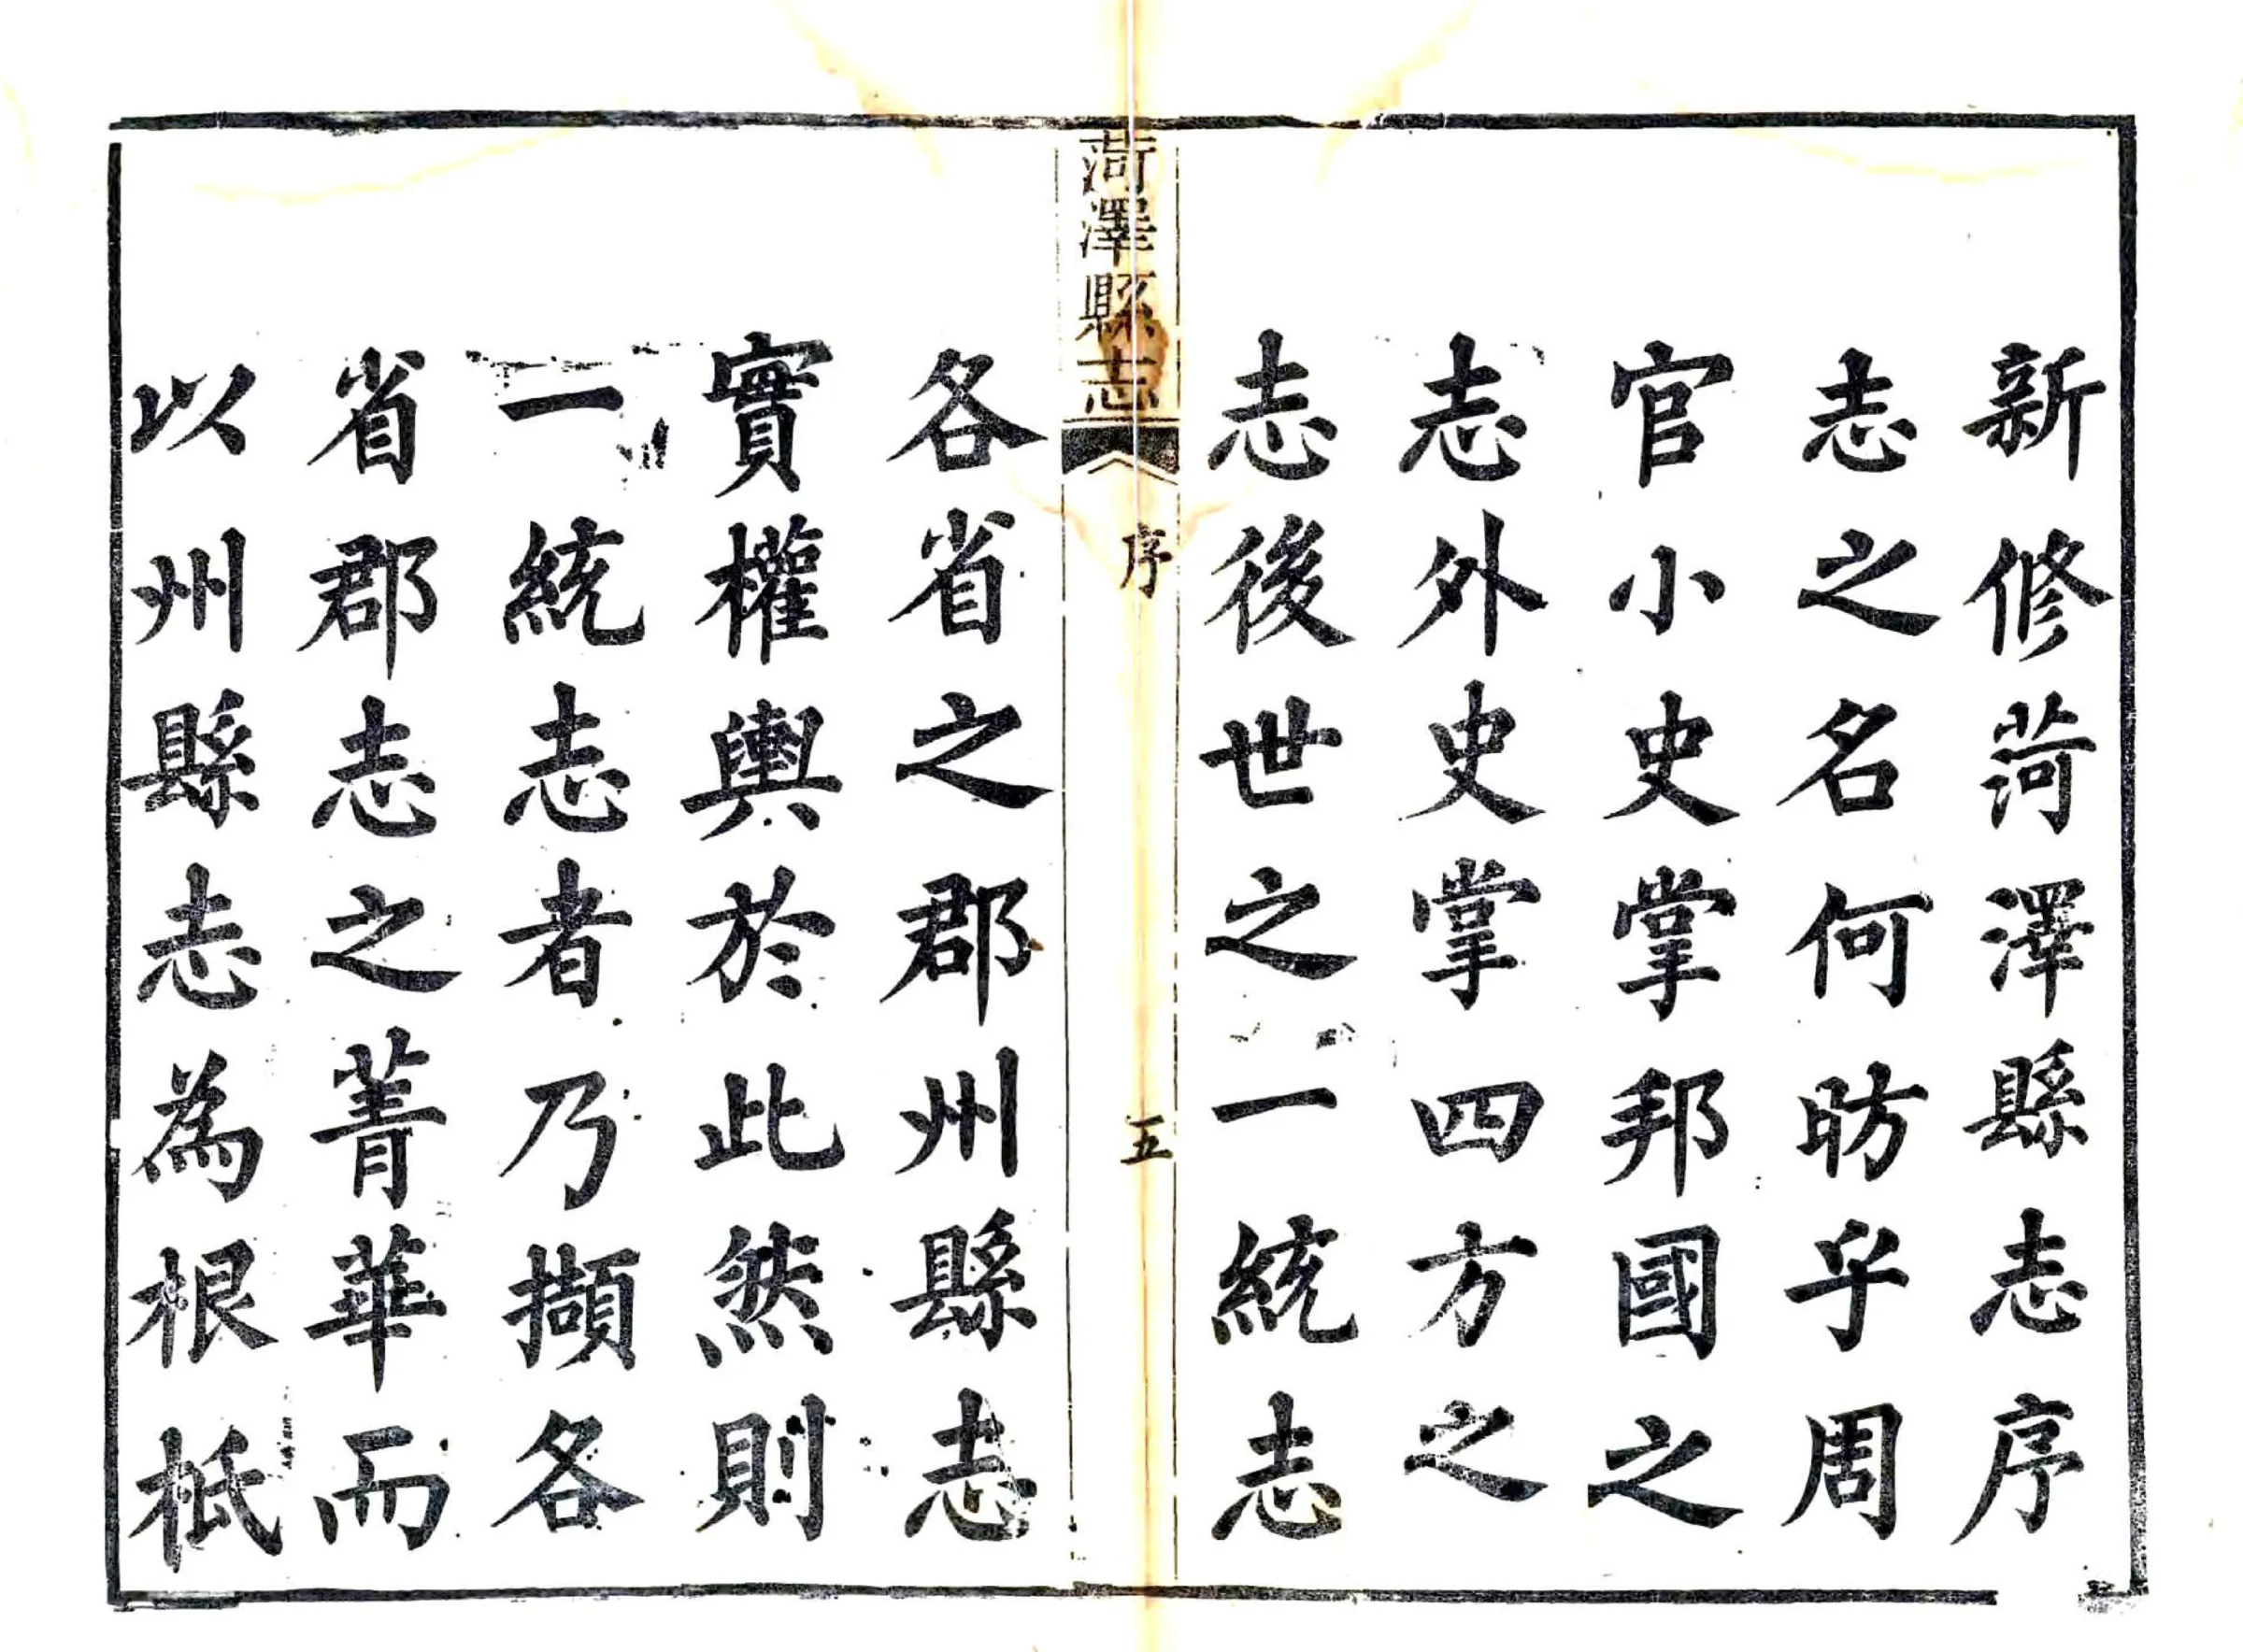 新修菏澤縣志序
志之名何昉乎周
官小史掌邦國之
志外史掌四方之
志後世之一統志
菏澤縣志
序
五
各省之郡州縣志
實權輿於此然則
一統志者乃擷各
省郡志之菁華而
以州縣志為根柢